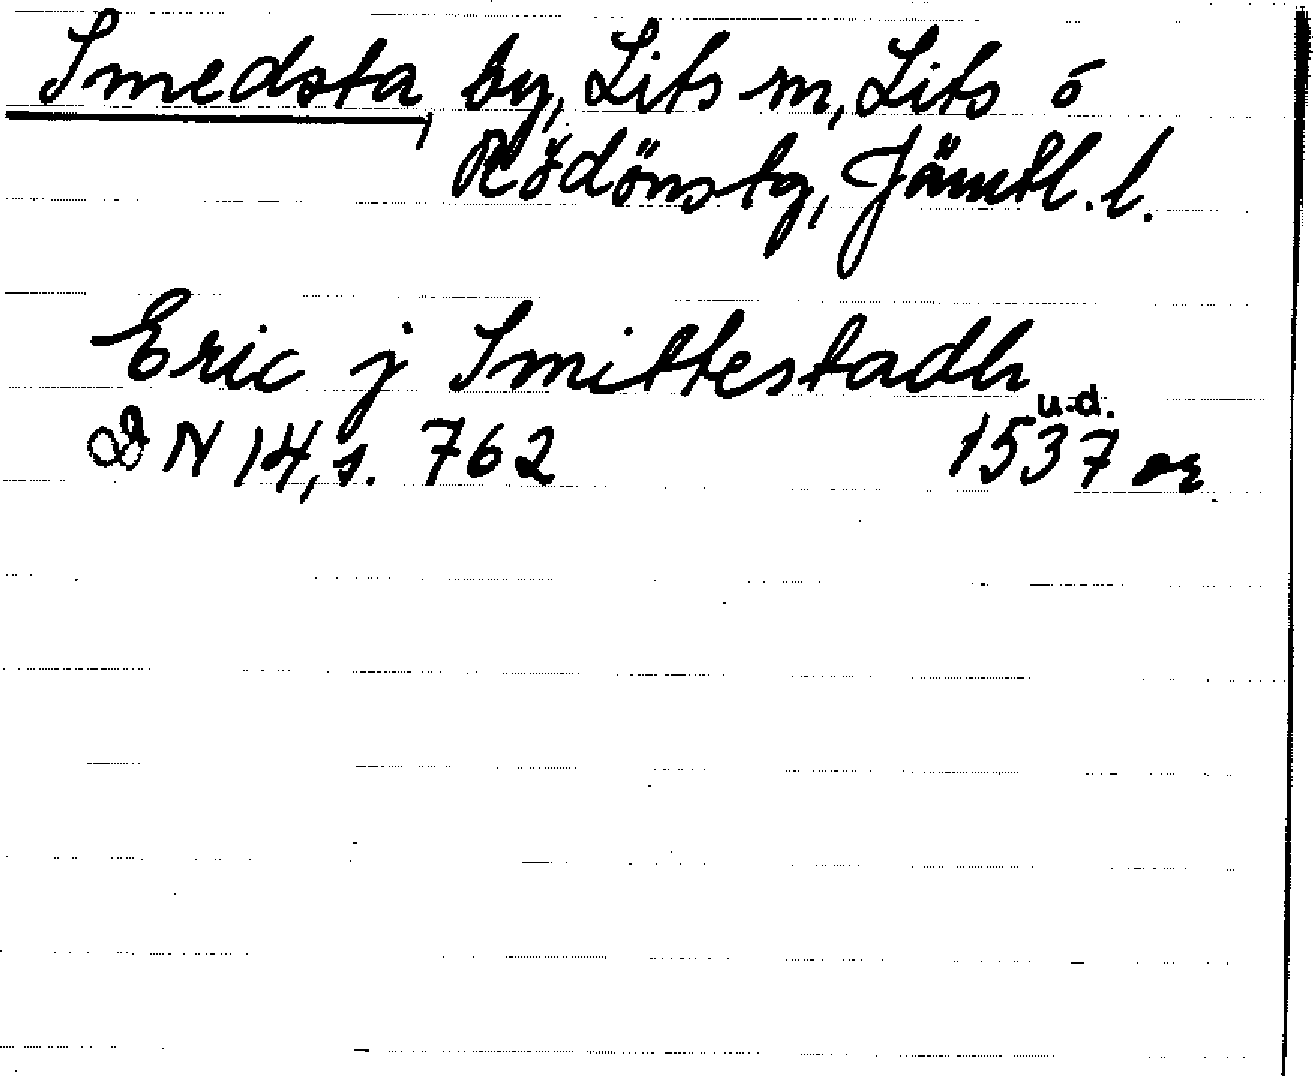 Smedsta, by, Lits sn, Lits o
Rödönstg, Jämtl. l.
Eric j Smittestadh
u.d.
DN 14, s. 762 1537 or